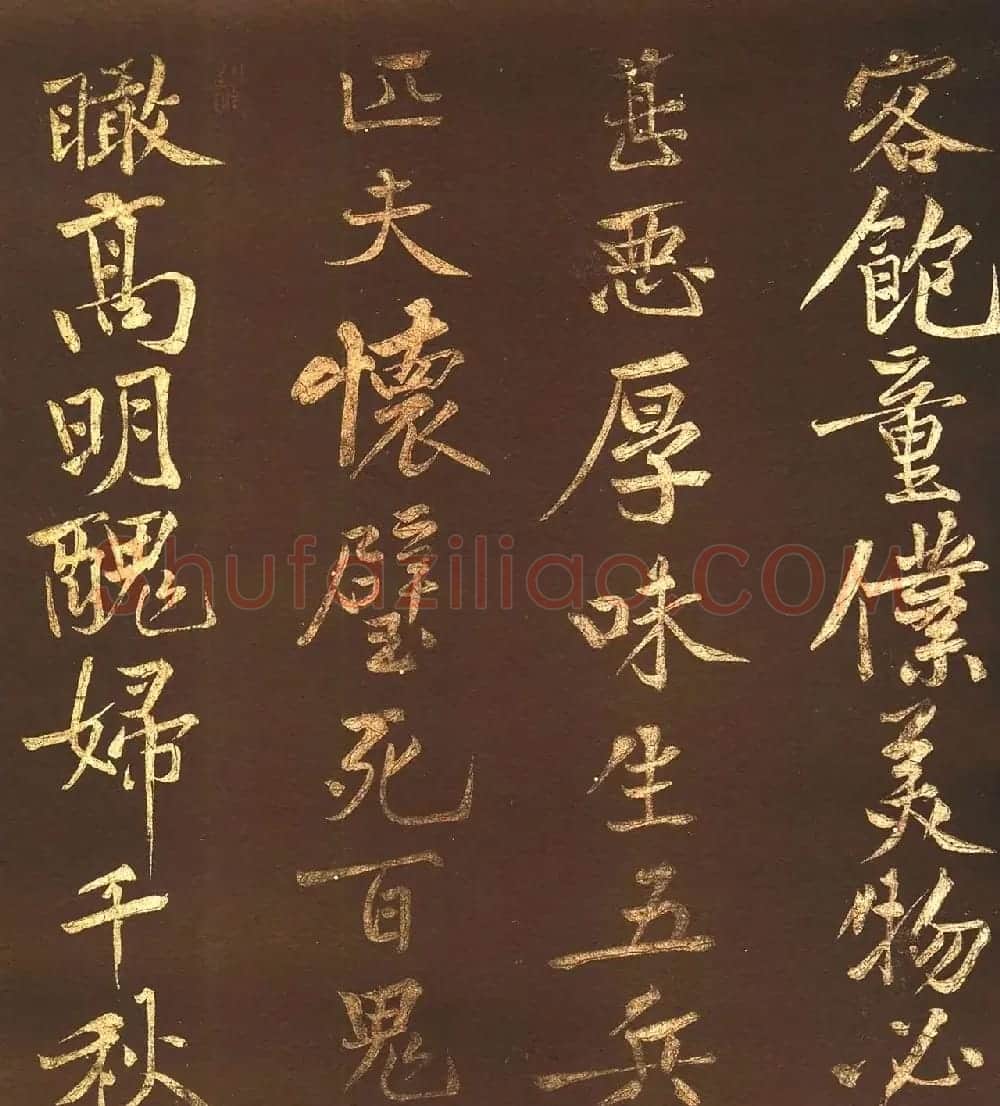 客飽童僕美物必
甚惡厚味生五兵
匹夫懷璧死百鬼
瞰高明醜婦千秋
shufaziliao.COM